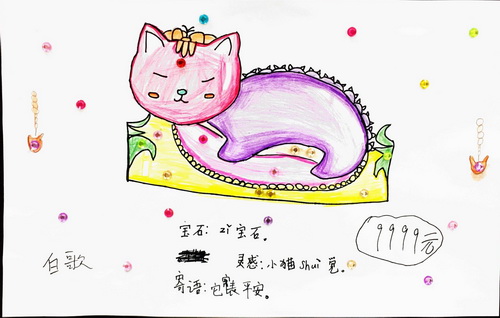 宝石: zǐ宝石。
9999元
灵感:小猫shuì觉。
白歌
寄语: 平安。